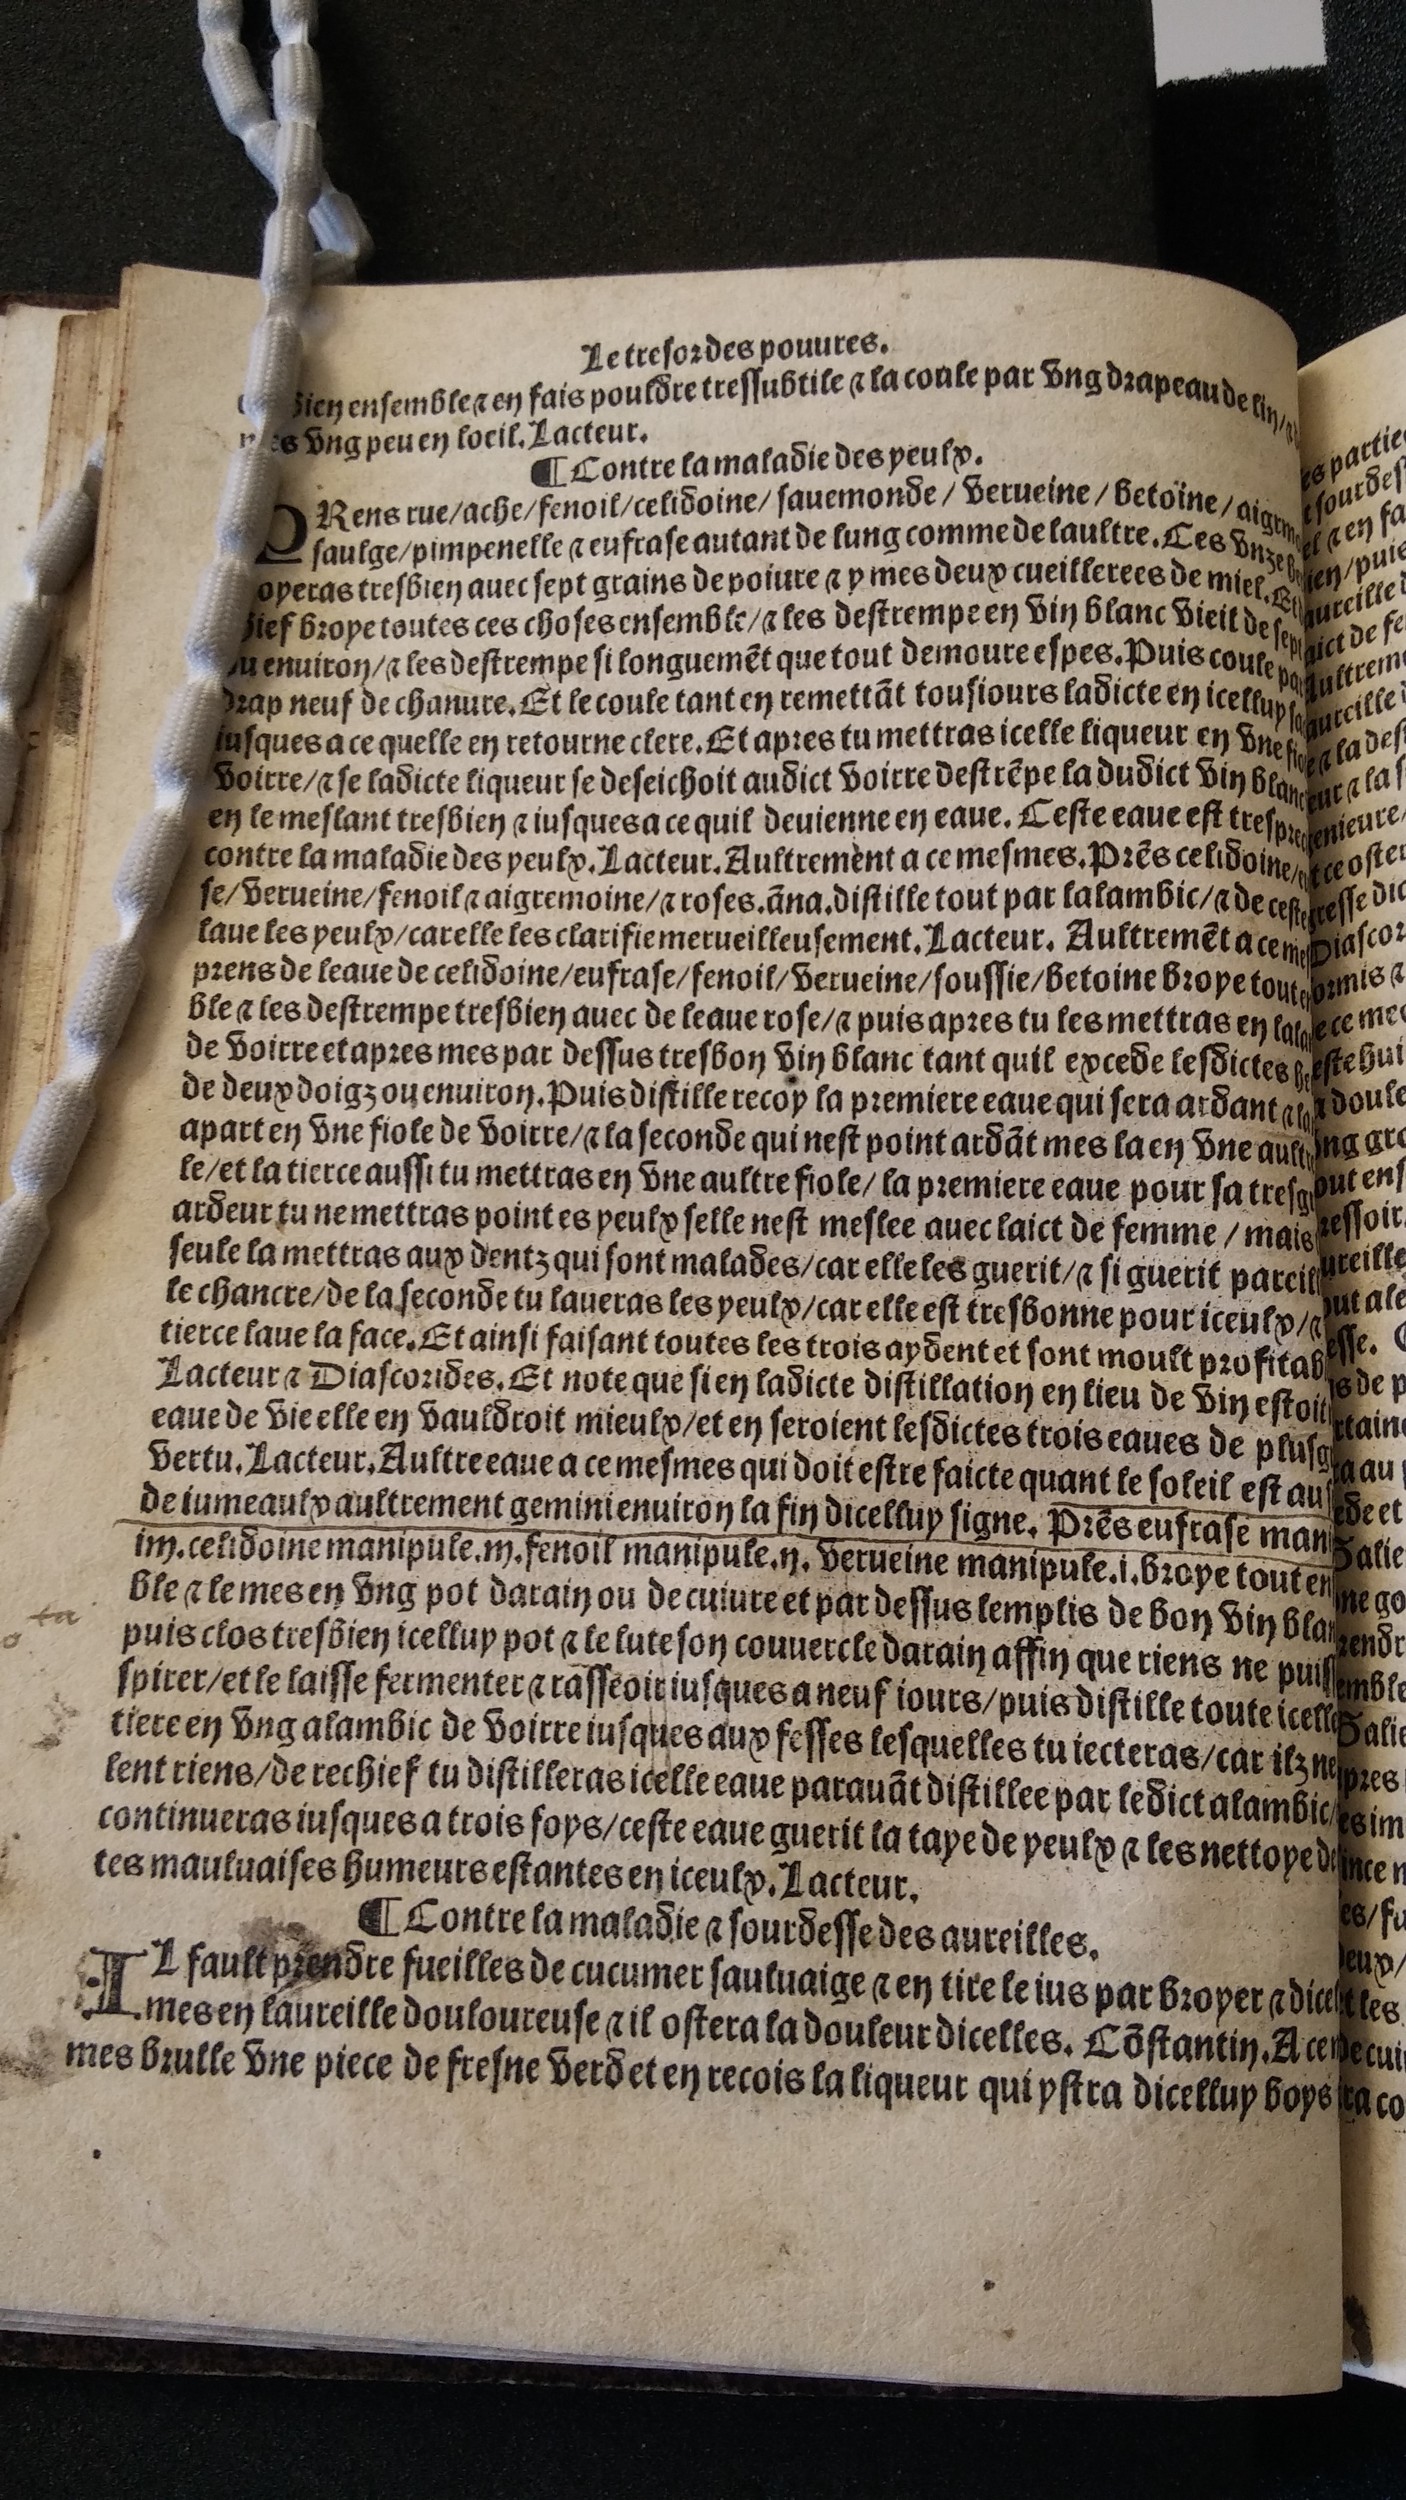 Le tresor des pouures.
bien ensemble ⁊ en fais pouldre tressubtile ⁊ la coule par vng drapeau de lin/
vng peu en loeil. Lacteur.
¶ Contre la maladie des yeulx.
PRens rue/ache/fenoil/celidoine/sauemonde/ verueine/betoine/
saulge/pimpenelle ⁊ eufrase autant de lung comme de laultre. Ces vnze
operas tresbien auec sept grains de poiure ⁊ y mes deux cueillerees de miel. Et
broye toutes ces choses ensemble/⁊ les destrempe en vin blanc vieil de sept
enuiron/⁊ les destrempe si longuemēt que tout demoure espes. Puis coule
drap neuf de chanure. Et le coule tant en remettāt tousiours ladicte en icelluy
iusques a ce quelle en retourne clere. Et apres tu mettras icelle liqueur en vne
voirre/⁊ se ladicte liqueur se deseichoit audict voirre destrēpe la dudict vin blanc
en le meslant tresbien ⁊ iusques a ce quil deuienne en eaue. Ceste eaue est
contre la maladie des yeulx. Lacteur. Aultrement a ce mesmes. Prēs celidoine/
se/verueine/fenoil ⁊ aigremoine/⁊ roses.āna.distille tout par lalambic/⁊ de ceste
laue les yeulx/car elle les clarifie merueilleusement. Lacteur. Aultremēt a ce
prens de leaue de celidoine/eufrase/fenoil/verueine/soussie/betoine broye
ble ⁊ les destrempe tresbien auec de leaue rose/⁊ puis apres tu les mettras en
de voirre et apres mes par dessus tresbon vin blanc tant quil excede lesdictes
de deux doigz ou enuiron. Puis distille recoy la premiere eaue qui sera ardant ⁊
apart en vne fiole de voirre/⁊ la seconde qui nest point ardāt mes la en vne
le/et la tierce aussi tu mettras en vne aultre fiole/ la premiere eaue pour sa
ardeur tu ne mettras point es yeulx selle nest meslee auec laict de femme/mais
seule la mettras aux dentz qui sont malades/car elle les guerit/⁊ si guerit
le chancre/de la seconde tu laueras les yeulx/car elle est tresbonne pour iceulx/⁊
tierce laue la face. Et ainsi faisant toutes les trois aydent et sont moult
Lacteur ⁊ Diascorides. Et note que si en ladicte distillation en lieu de vin estoit
eaue de vie elle en vauldroit mieulx/et en seroient lesdictes trois eaues de
vertu. Lacteur. Aultre eaue a ce mesmes qui doit estre faicte quant le soleil est au
de iumeaulx aultrement gemini enuiron la fin dicelluy signe. Prēs eufrase
iiij.celidoine manipule.iij.fenoil manipule.ij. verueine manipule.i.broye tout
ble ⁊ le mes en vng pot darain ou de cuiure et par dessus lemplis de bon vin
puis clos tresbien icelluy pot ⁊ le lute son couuercle darain affin que riens ne
spirer/et le laisse fermenter ⁊ rasseoir iusques a neuf iours/puis distille toute
tiere en vng alambic de voirre iusques aux fesses lesquelles tu iecteras/car ilz ne
lent riens/de rechief tu distilleras icelle eaue parauāt distillee par ledict alambic/
continueras iusques a trois foys/ceste eaue guerit la taye de yeulx ⁊ les nettoye
tes mauluaises humeurs estantes en iceulx. Lacteur.
¶ Contre la maladie ⁊ sourdesse des aureilles.
IL fault prendre fueilles de cucumer sauluaige ⁊ en tire le ius par broyer ⁊
mes en laureille douloureuse ⁊ il ostera la douleur dicelles. Cōstantin. A ce
mes brulle vne piece de fresne verd et en recois la liqueur qui ystra dicelluy boys